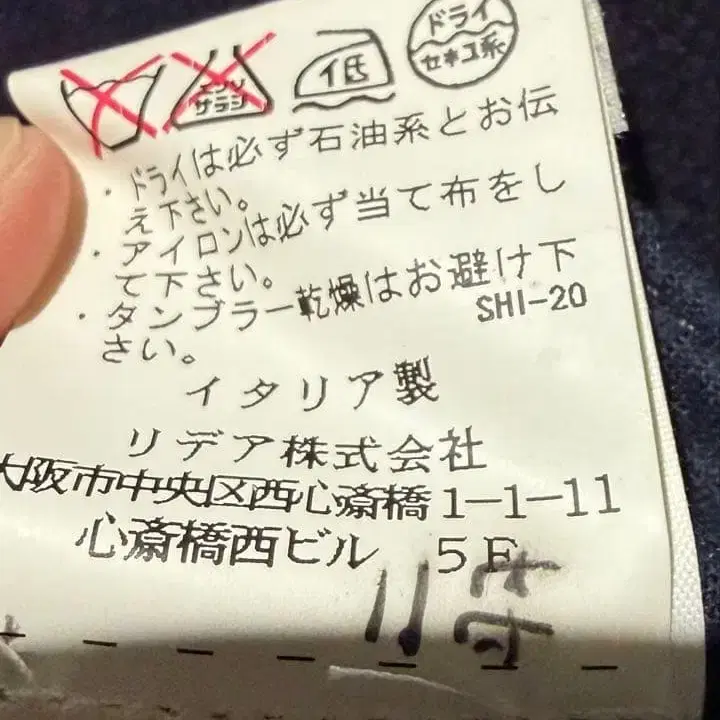 エンソ
サラシ
低
ドライ
セキユ系
・ドライは必ず石油系とお伝
え下さい。
・アイロンは必ず当て布をし
て下さい。
・タンブラー乾燥はお避け下
さい。
SHI-20
イタリア製
リデア株式会社
大阪市中央区西心斎橋1-1-11
心斎橋西ビル 5F